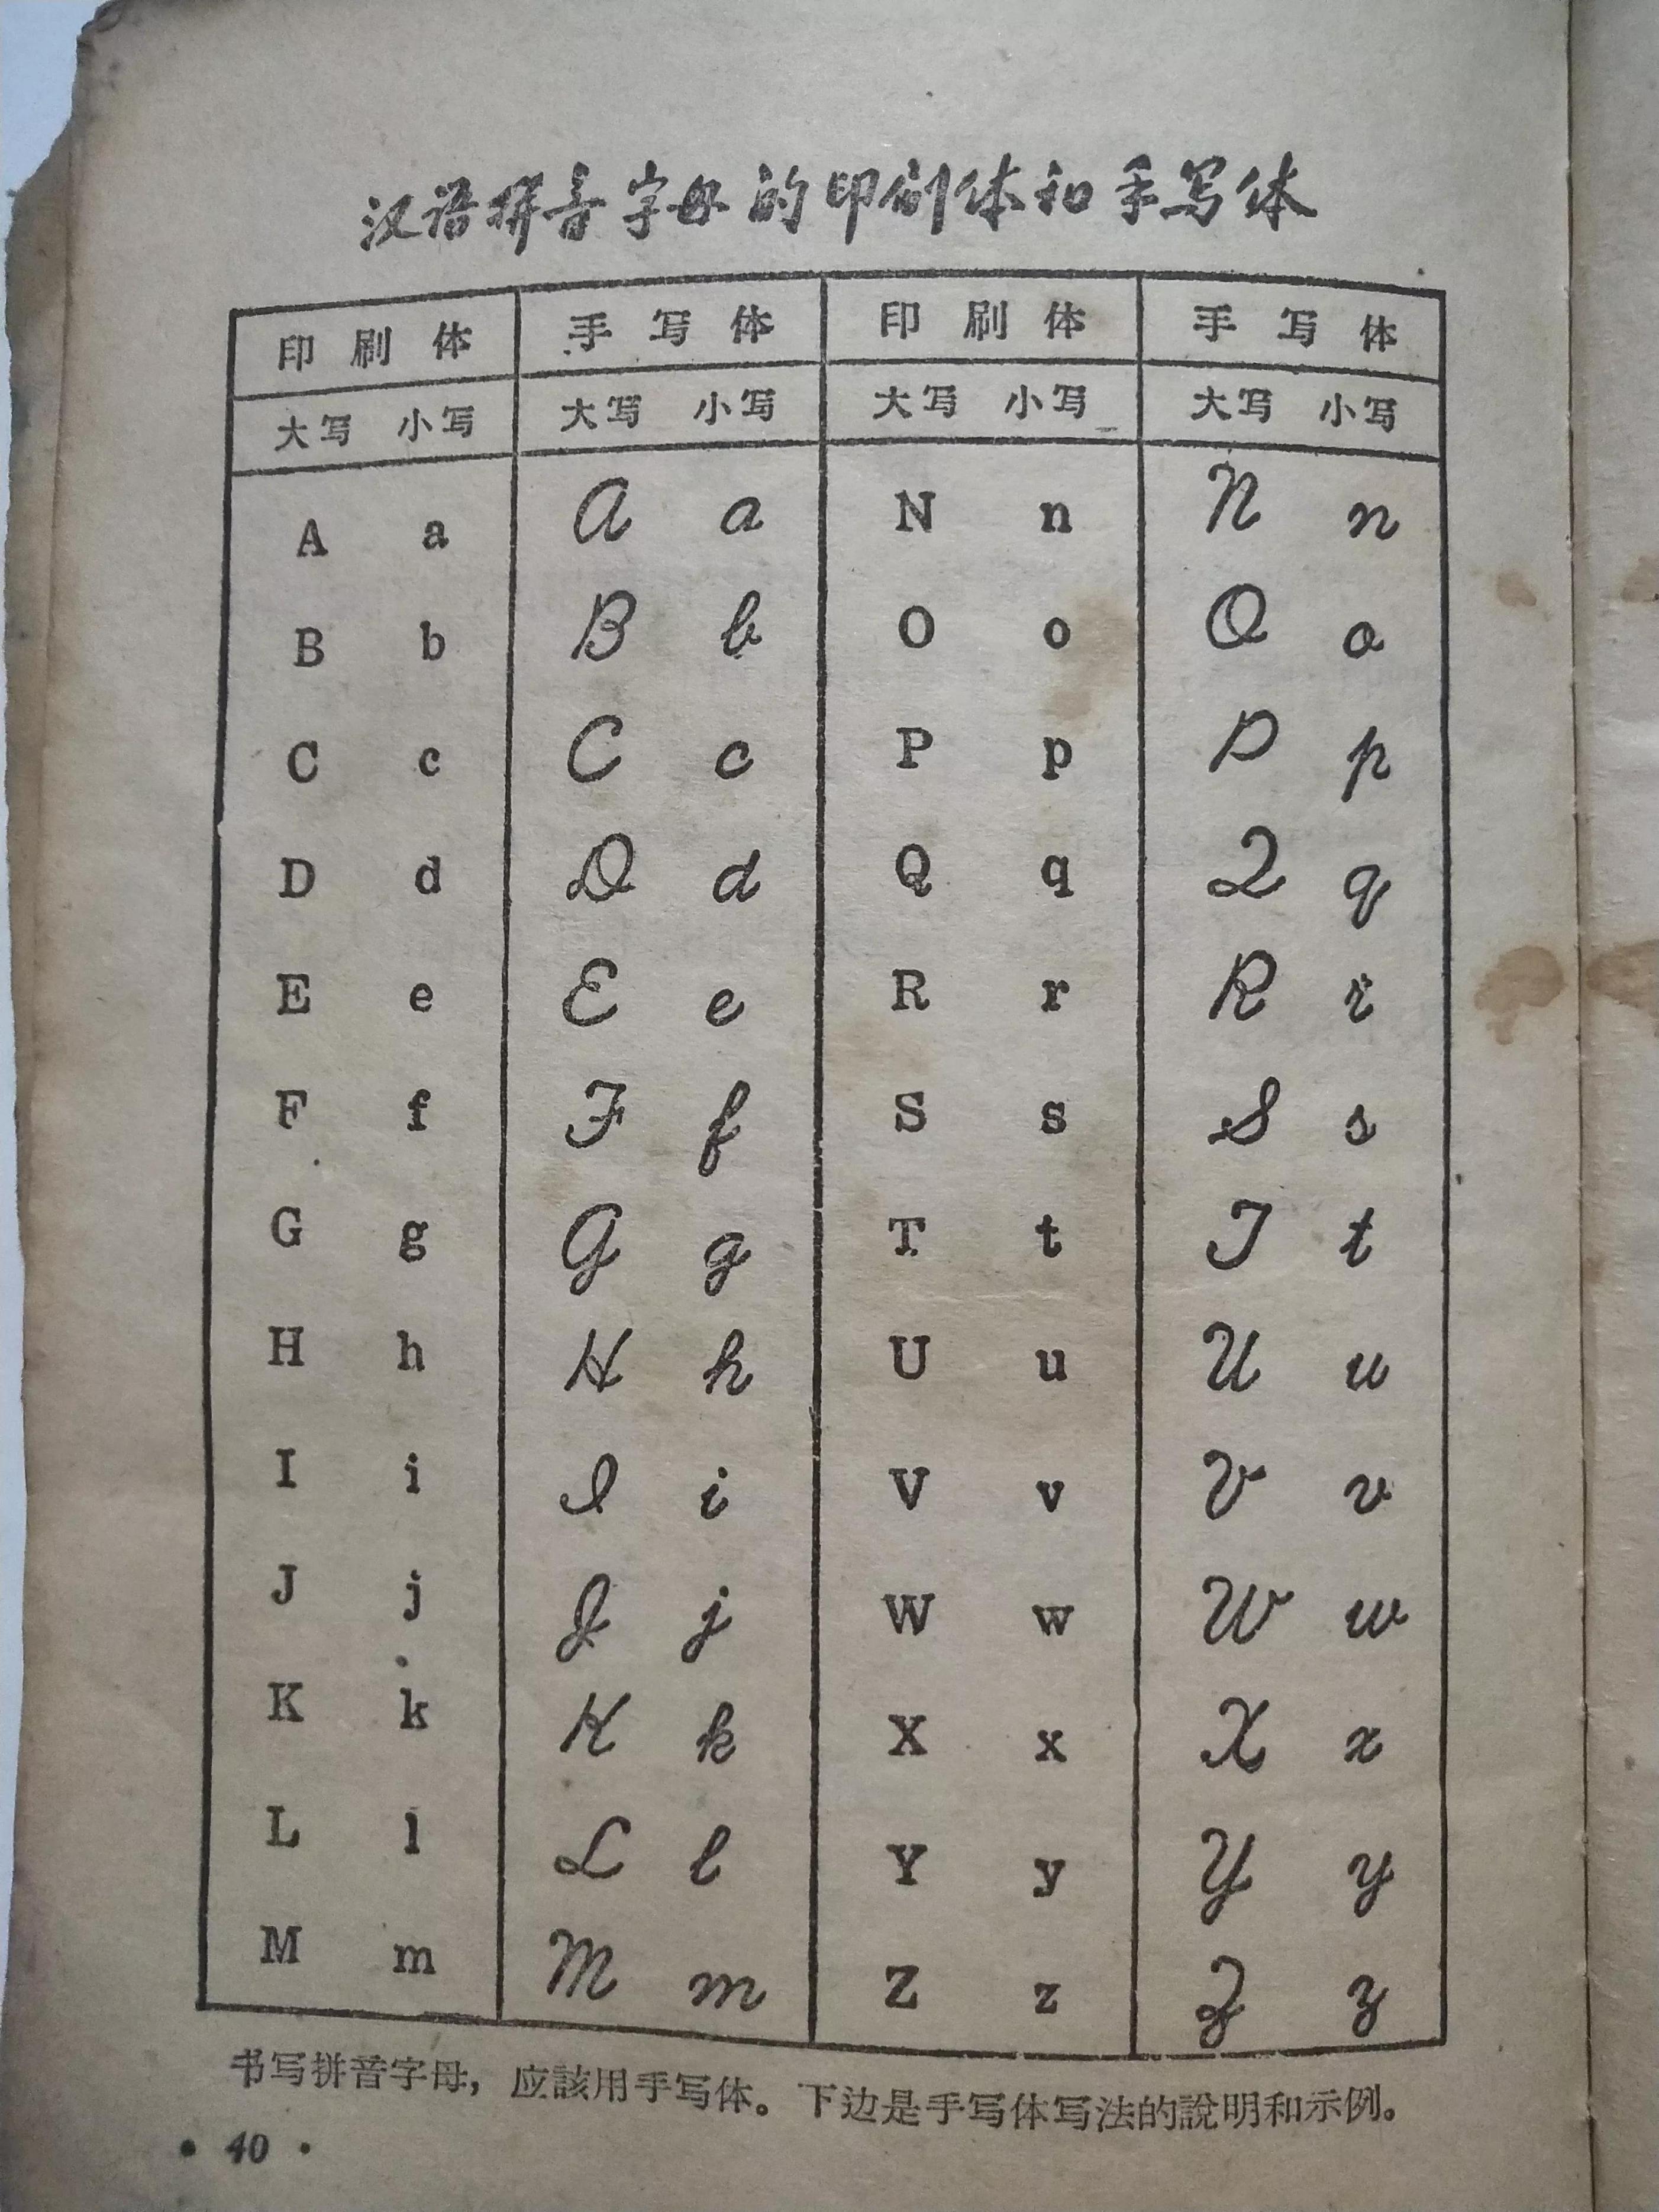 汉语拼音字母的印刷体和手写体
印刷体 手写体 印刷体 手写体
大写 小写 大写 小写 大写 小写 大写 小写
A a A a N n N n
B b B b O o O o
C c C c P p P p
D d D d Q q Q q
E e E e R r R r
F f F f S s S s
G g G g T t T t
H h H h U u U u
I i I i V v V v
J j J j W w W w
K k K k X x X x
L l L l Y y Y y
M m M m Z z Z z
书写拼音字母，应該用手写体。下边是手写体写法的說明和示例。
• 40 •